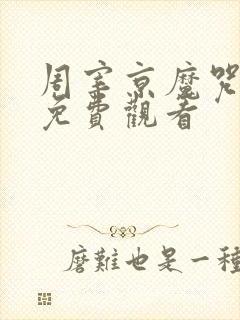 周室京魔咒
免費觀看
磨難也是一種